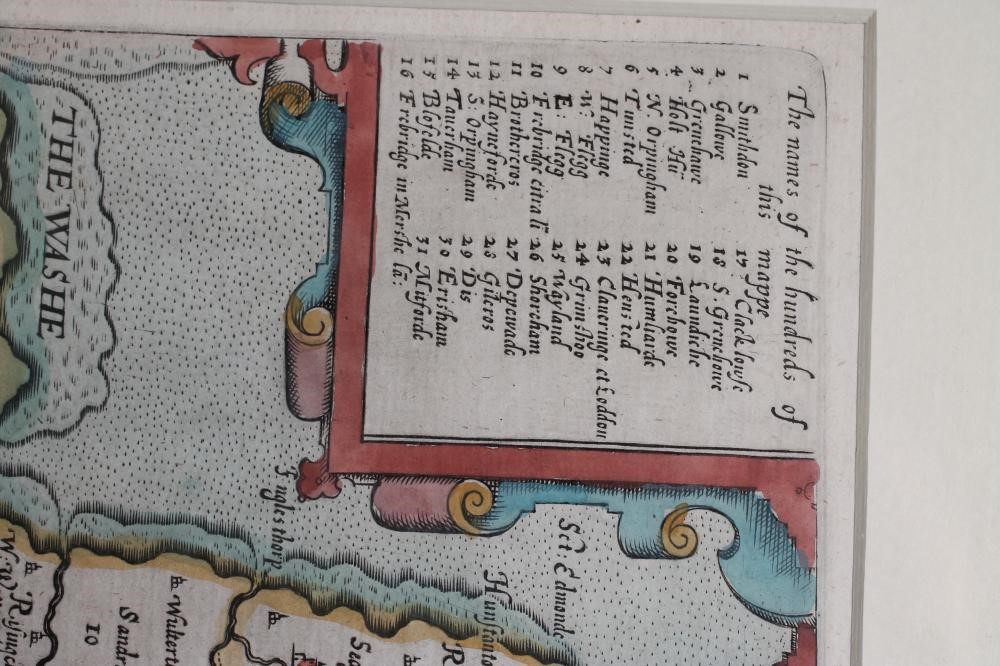 The names of the hundreds of
this mappe
1 Smithdon
2 Gallowe
3 Grenehowe
4 Holt Hū
5 N. Orpingham
6 Tunsted
7 Happinge
8 W: Flegg
9 E: Flegg
10 Frebridge citra lī
11 Brothercros
12 Hayneforde
13 S. Orpingham
14 Tauerham
15 Blofelde
16 Frebridge in Mershe lā:
17 Clacklowse
18 S. Grenehowe
19 Laundiche
20 Forehowe
21 Humliarde
22 Hensted
23 Claueringe et Loddon
24 Grimshoo
25 Wayland
26 Shoreham
27 Depewade
28 Gilcros
29 Dis
30 Ersham
31 Mitforde
THE WASHE
Inglesthorp
Sct Edmonde
Hunstanto
W. Rising
Wulfert
Sandr
10